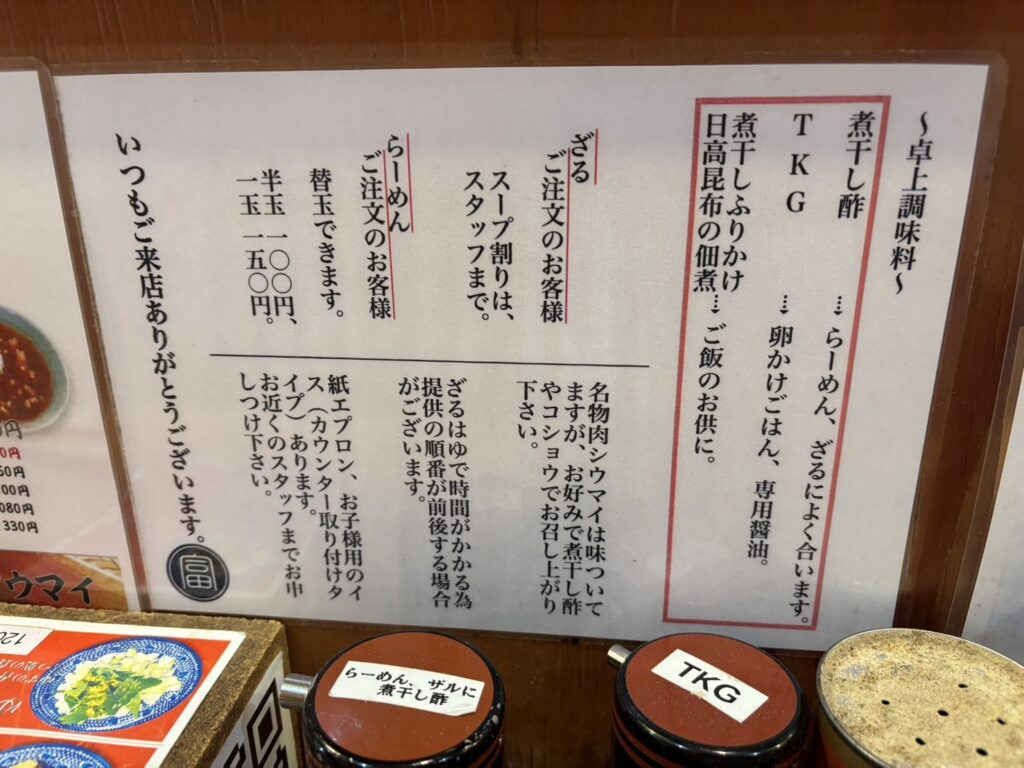 ～卓上調味料～
煮干し酢 …らーめん、ざるによく合います。
TKG …卵かけごはん、専用醤油。
煮干しふりかけ
日高昆布の佃煮…ご飯のお供に。
ざる
ご注文のお客様
スープ割りは、
スタッフまで。
らーめん
ご注文のお客様
替玉できます。
半玉 一〇〇円、
一玉 一五〇円。
名物肉シウマイは味ついて
ますが、お好みで煮干し酢
やコショウでお召し上がり
下さい。
ざるはゆで時間がかかる為
提供の順番が前後する場合
がございます。
紙エプロン、お子様用のイ
ス（カウンター取り付けタ
イプ）あります。
お近くのスタッフまでお申
しつけ下さい。
いつもご来店ありがとうございます。
富
080円
330円
ウマイ
らーめん、ザルに
煮干し酢
TKG